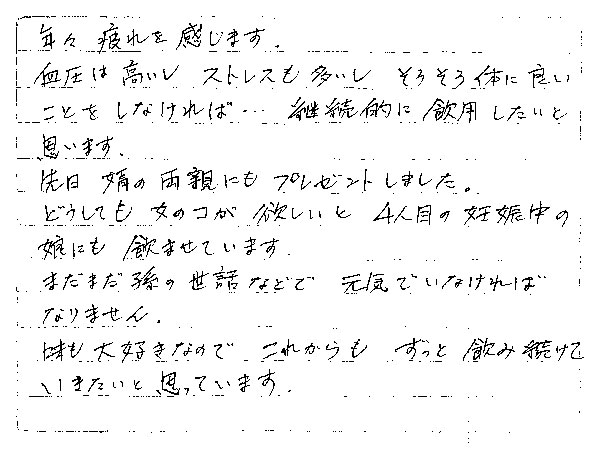 年々 疲れを感じます.
血圧は高いし ストレスも多いし そろそろ体に良い
ことをしなければ… 継続的に飲用したいと
思います.
先日 婿の両親にもプレゼントしました。
どうしても女のコが欲しいと 4人目の妊娠中の
娘にも飲ませています.
まだまだ孫の世話などで 元気でいなければ
なりません.
味も大好きなので これからも ずっと飲み続けて
いきたいと思っています.